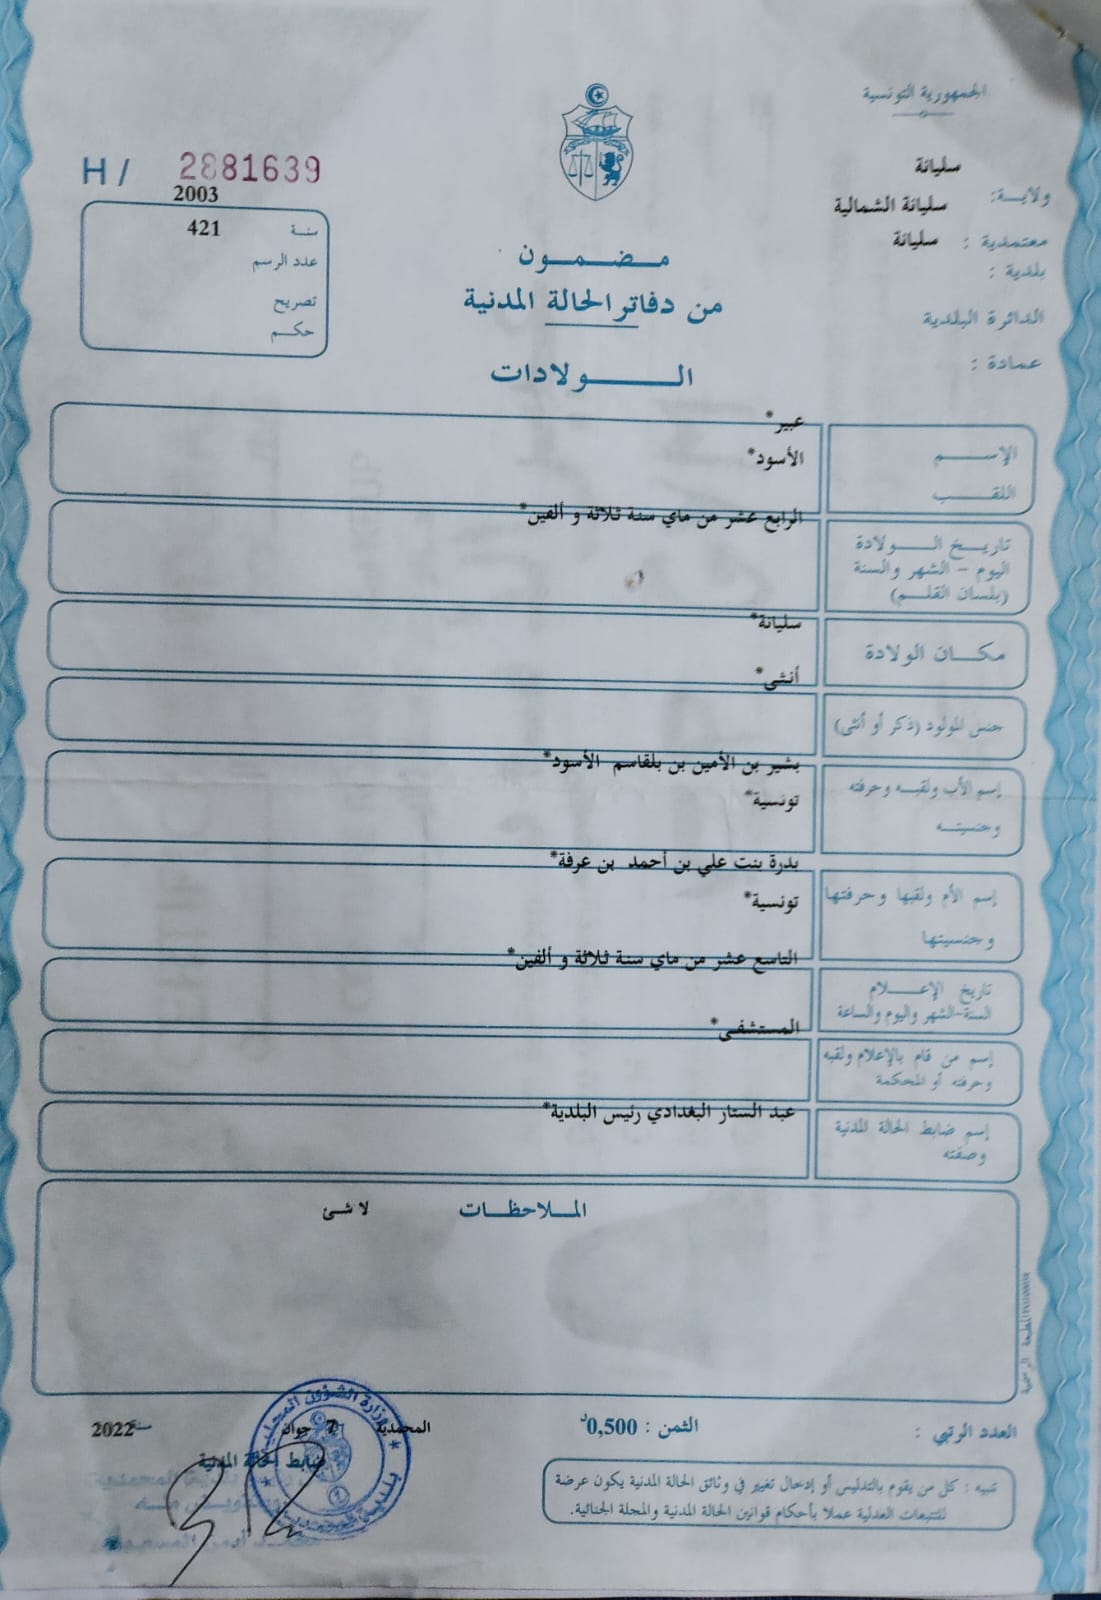 الجمهورية التونسية
H / 2881639
ولاية: سليانة
معتمدية : سليانة الشمالية
بلدية : سليانة
الدائرة البلدية
عمادة :
2003
سنة 421
عدد الرسم
تصريح
حكم
مضمون
من دفاتر الحالة المدنية
الولادات
الإسم عبير*
اللقب الأسود*
تاريخ الولادة الرابع عشر من ماي سنة ثلاثة و ألفين*
اليوم - الشهر والسنة
(بلسان القلم)
مكان الولادة سليانة*
جنس المولود (ذكر أو أنثى) أنثى*
إسم الأب ولقبه وحرفته بشير بن الأمين بن بلقاسم الأسود*
وجنسيته تونسية*
إسم الأم ولقبها وحرفتها بدرة بنت علي بن أحمد بن عرفة*
وجنسيتها تونسية*
تاريخ الإعلام التاسع عشر من ماي سنة ثلاثة و ألفين*
السنة-الشهر واليوم والساعة
إسم من قام بالإعلام ولقبه المستشفى*
وحرفته أو المحكمة
إسم ضابط الحالة المدنية عبد الستار البغدادي رئيس البلدية*
وصفته
الملاحظات لا شئ
المطبعة الرسمية
العدد الرتبي :
الثمن : 0,500د
المحمدية 7 جوان سنة 2022
ضابط الحالة المدنية
وزارة الشؤون المحلية
تنبيه : كل من يقوم بالتدليس أو إدخال تغيير في وثائق الحالة المدنية يكون عرضة
للتتبعات العدلية عملا بأحكام قوانين الحالة المدنية والمجلة الجنائية.